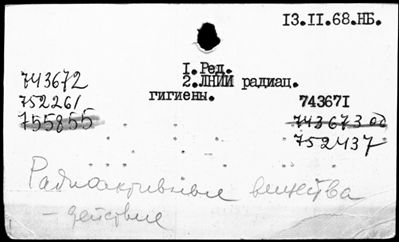 13.II.68.НБ.
I.Ред.
2.ЛНИИ радиац.
гигиены.
743672
752261
755855
743671
743673 од
752437
Радиоактивные вещества
- действие